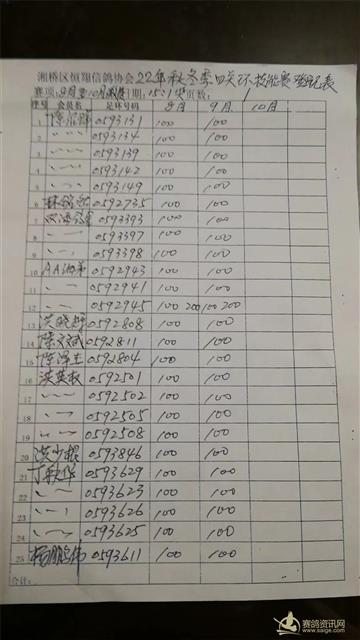 湘桥区恒翔信鸽协会22年秋冬季四关环技能赛登记表
赛项: 日期: 页数:
序号 会员名 足环号码 8月 9月 10月
1 0593131 100 100
2 〃 〃 〃 0593134 100 100
3 〃 〃 〃 0593139 100 100
4 〃 〃 〃 0593142 100 100
5 〃 〃 〃 0593149 100 100
6 0592735 100 100
7 0593393 100 100
8 〃 〃 0593397 100 100
9 〃 〃 0593398 100 100
10 AA 0592943 100 100
11 〃 〃 0592941 100 100
12 〃 〃 0592945 100 200 100 200
13 洪晓 0592808 100 100
14 陈文斌 0592811 100 100
15 陈泽生 0592804 100 100
16 洪英 0592501 100 100
17 〃 〃 0592502 100 100
18 〃 〃 0592505 100 100
19 〃 〃 0592508 100 100
20 洪少 0593846 100 100
21 丁 华 0593629 100 100
22 〃 〃 0593623 100 100
23 〃 〃 0593626 100 100
24 〃 〃 0593625 100 100
25 杨鹏伟 0593611 100 100
合计:
赛鸽资讯网
www.saige.com